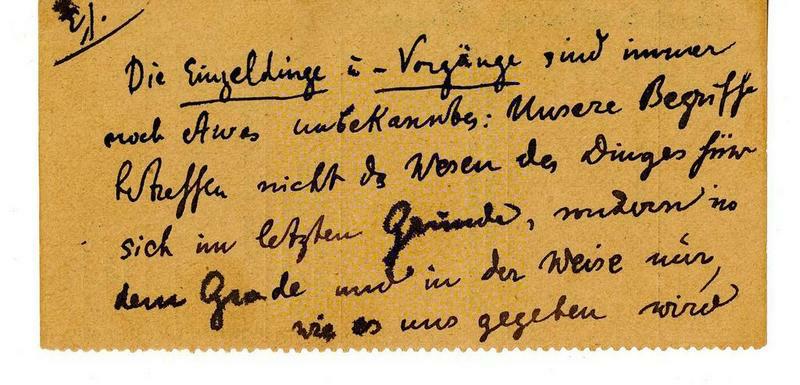 2).
Die Einzeldinge u - Vorgänge sind immer
noch etwas unbekanntes: Unsere Begriffe
betreffen nicht ds Wesen des Dinges für
sich im letzten Grunde, sondern in
dem Grade und in der Weise nur,
wie es uns gegeben wird